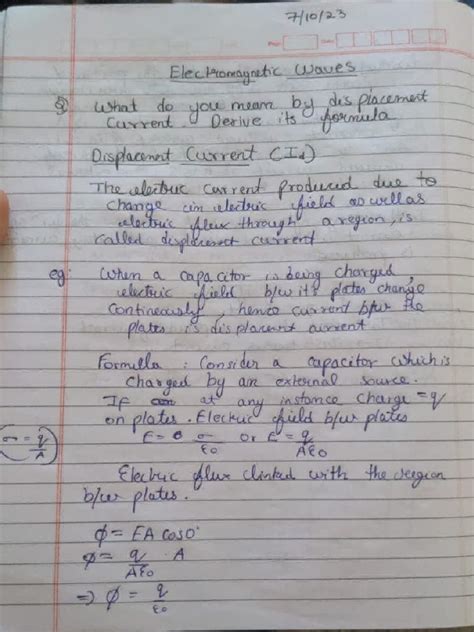 7/10/23
Electromagnetic Waves
Q What do you mean by displacement
Current. Derive its formula
Displacement Current (Id)
The electric current produced due to
change in electric field as well as
electric flux through a region, is
called displacement current
eg: When a capacitor is being charged,
electric field b/w its plates change
contineously, hence current b/w the
plates is displacment current
Formulla : Consider a capacitor which is
charged by an external source.
If at any instance charge = q
on plates. Electric field b/w plates
E = σ/ε0 or E = q/Aε0
σ = q/A
Electric flux linked with the region
b/w plates.
ϕ = EA cos0°
ϕ = q/Aε0 . A
⇒ ϕ = q/ε0